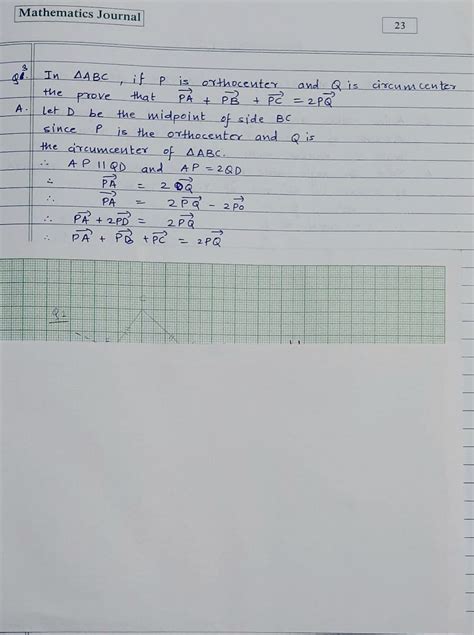 Mathematics Journal
23
Q3. In △ABC, if P is orthocenter and Q is circumcenter
the prove that PA⃗ + PB⃗ + PC⃗ = 2PQ⃗
A. Let D be the midpoint of side BC
since P is the orthocenter and Q is
the circumcenter of △ABC.
∴ AP || QD and AP = 2QD
∴ PA⃗ = 2DQ⃗
∴ PA⃗ = 2PQ⃗ - 2PD⃗
∴ PA⃗ + 2PD⃗ = 2PQ⃗
∴ PA⃗ + PB⃗ + PC⃗ = 2PQ⃗